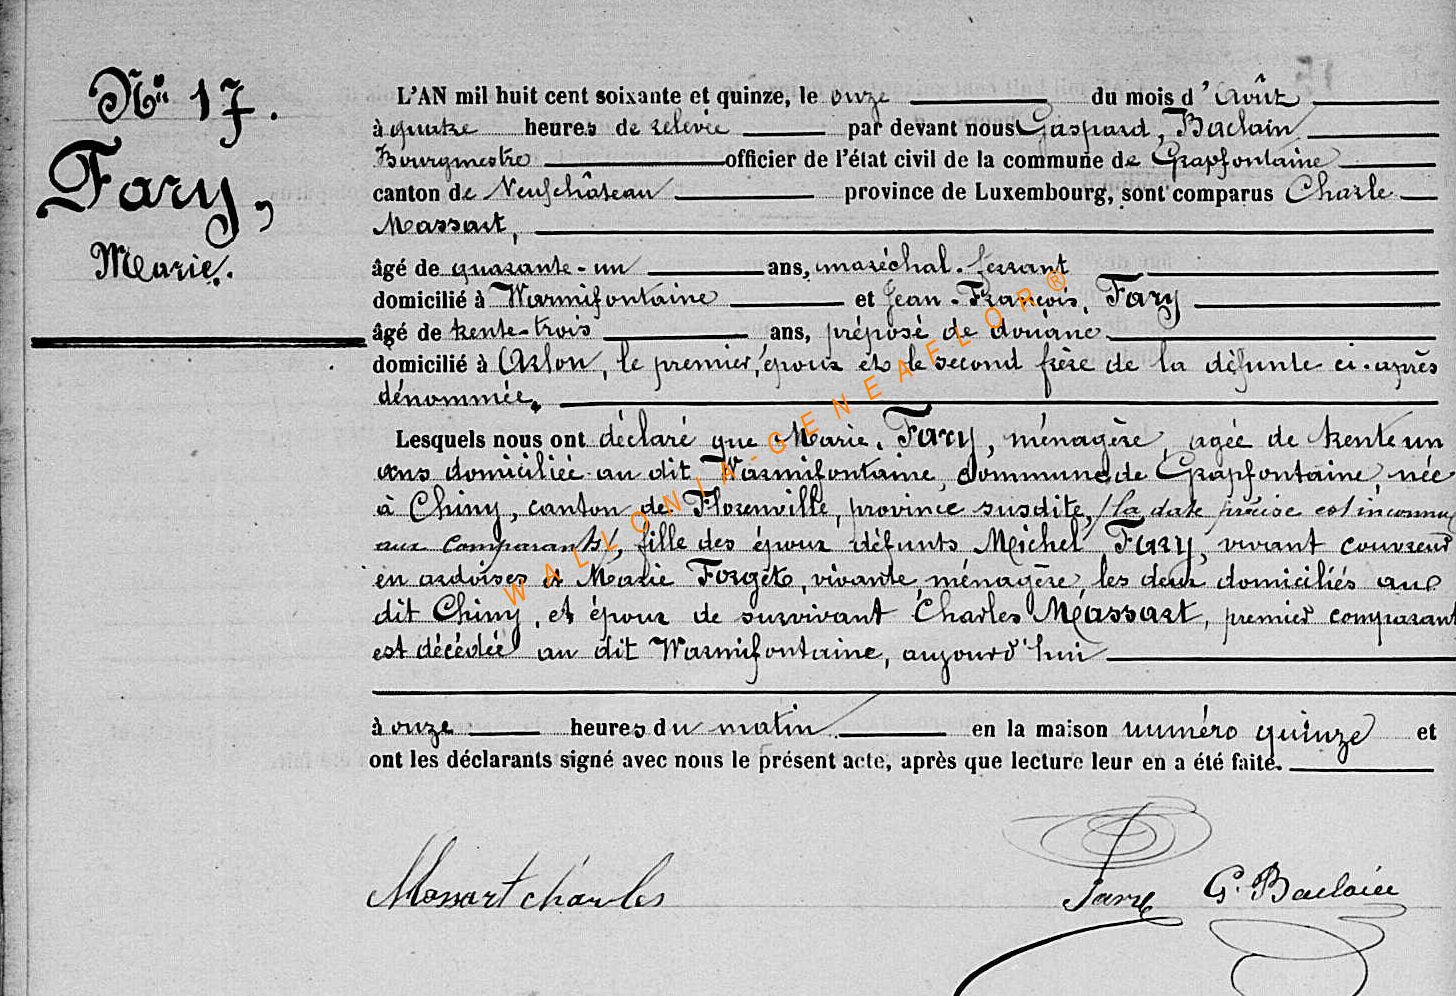 N° 17.
Fary,
Marie.
L'AN mil huit cent soixante et quinze, le onze du mois d'Août
à quatre heures de relevée par devant nous Gaspard, Baclain
Bourgmestre officier de l'état civil de la commune de Grapfontaine
canton de Neufchâteau province de Luxembourg, sont comparus Charle
Massart,
âgé de quarante-un ans, maréchal-ferrant
domicilié à Warmifontaine et Jean-François, Fary
âgé de trente-trois ans, préposé de douane
domicilié à Arlon, le premier, époux et le second frère de la défunte ci-après
dénommée.
Lesquels nous ont déclaré que Marie, Fary, ménagère, agée de trente un
ans domiciliée au dit Warmifontaine, commune de Grapfontaine, née
à Chiny, canton de Florenville, province susdite, (la date précise est inconnue
aux comparants), fille des époux défunts Michel Fary, vivant couvreur
en ardoises et Marie Forget, vivante ménagère, les deux domiciliés au
dit Chiny, et époux de survivant Charles Massart, premier comparant
est décédée au dit Warmifontaine, aujourd'hui
à onze heures du matin en la maison numéro quinze et
ont les déclarants signé avec nous le présent acte, après que lecture leur en a été faite.
Massart charles
G. Baclain
WALLONIA-GENEAFLOR®